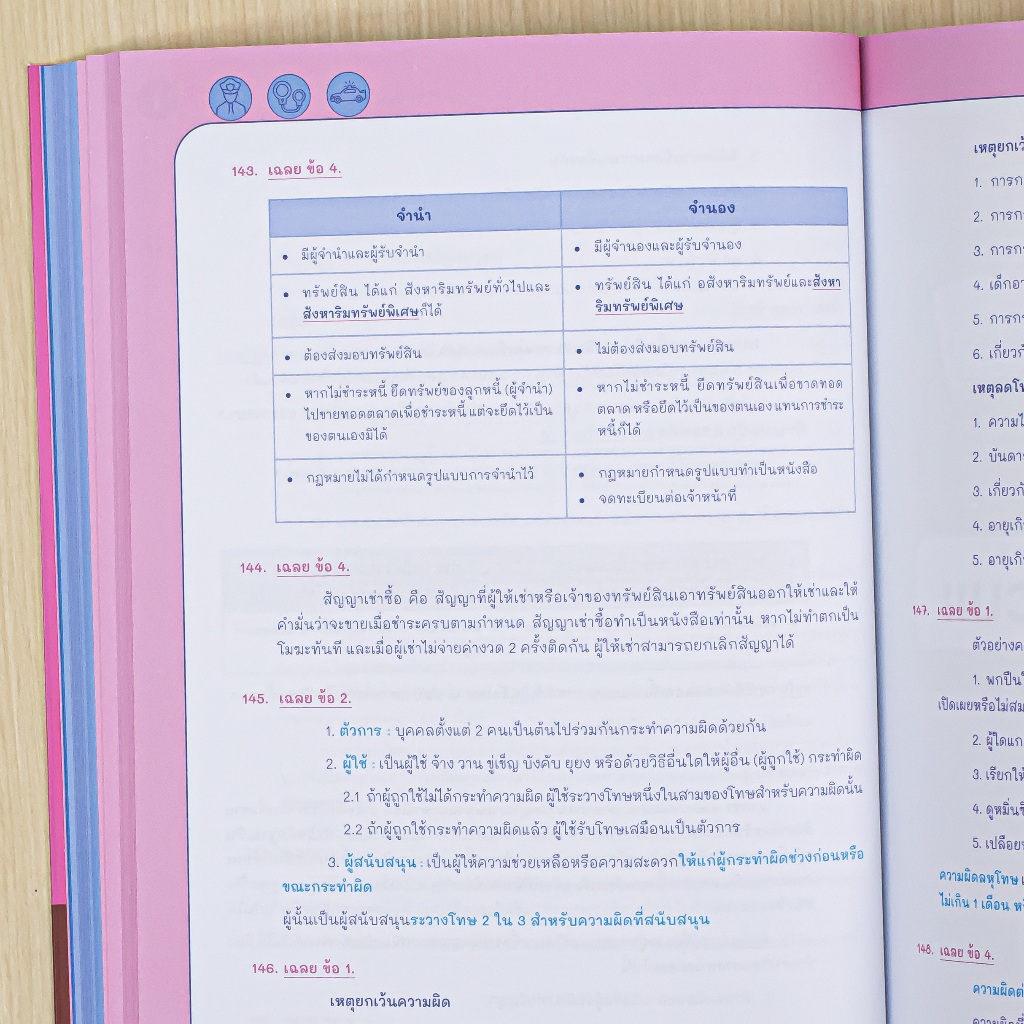 143. เฉลย ข้อ 4.
จำนำ
จำนอง
• มีผู้จำนำและผู้รับจำนำ
• มีผู้จำนองและผู้รับจำนอง
• ทรัพย์สิน ได้แก่ สังหาริมทรัพย์ทั่วไปและ
สังหาริมทรัพย์พิเศษก็ได้
• ทรัพย์สิน ได้แก่ อสังหาริมทรัพย์และสังหา
ริมทรัพย์พิเศษ
• ต้องส่งมอบทรัพย์สิน
• ไม่ต้องส่งมอบทรัพย์สิน
• หากไม่ชำระหนี้ ยึดทรัพย์ของลูกหนี้ (ผู้จำนำ)
ไปขายทอดตลาดเพื่อชำระหนี้ แต่จะยึดไว้เป็น
ของตนเองมิได้
• หากไม่ชำระหนี้ ยึดทรัพย์สินเพื่อขาดทอด
ตลาด หรือยึดไว้เป็นของตนเอง แทนการชำระ
หนี้ก็ได้
• กฎหมายไม่ได้กำหนดรูปแบบการจำนำไว้
• กฎหมายกำหนดรูปแบบทำเป็นหนังสือ
• จดทะเบียนต่อเจ้าหน้าที่
144. เฉลย ข้อ 4.
สัญญาเช่าซื้อ คือ สัญญาที่ผู้ให้เช่าหรือเจ้าของทรัพย์สินเอาทรัพย์สินออกให้เช่าและให้
คำมั่นว่าจะขายเมื่อชำระครบตามกำหนด สัญญาเช่าซื้อทำเป็นหนังสือเท่านั้น หากไม่ทำตกเป็น
โมฆะทันที และเมื่อผู้เช่าไม่จ่ายค่างวด 2 ครั้งติดกัน ผู้ให้เช่าสามารถยกเลิกสัญญาได้
145. เฉลย ข้อ 2.
1. ตัวการ : บุคคลตั้งแต่ 2 คนเป็นต้นไปร่วมกันกระทำความผิดด้วยกัน
2. ผู้ใช้ : เป็นผู้ใช้ จ้าง วาน ขู่เข็ญ บังคับ ยุยง หรือด้วยวิธีอื่นใดให้ผู้อื่น (ผู้ถูกใช้) กระทำผิด
2.1 ถ้าผู้ถูกใช้ไม่ได้กระทำความผิด ผู้ใช้ระวางโทษหนึ่งในสามของโทษสำหรับความผิดนั้น
2.2 ถ้าผู้ถูกใช้กระทำความผิดแล้ว ผู้ใช้รับโทษเสมือนเป็นตัวการ
3. ผู้สนับสนุน : เป็นผู้ให้ความช่วยเหลือหรือความสะดวกให้แก่ผู้กระทำผิดช่วงก่อนหรือ
ขณะกระทำผิด
ผู้นั้นเป็นผู้สนับสนุนระวางโทษ 2 ใน 3 สำหรับความผิดที่สนับสนุน
146. เฉลย ข้อ 1.
เหตุยกเว้นความผิด
เหตุยกเว้
1. การก
2. การก
3. การก
4. เด็กอา
5. การก
6. เกี่ยวกั
เหตุลดโท
1. ความไ
2. บันดา
3. เกี่ยวกั
4. อายุเกิ
5. อายุเกิ
147. เฉลย ข้อ 1.
ตัวอย่างค
1. พกปืน
เปิดเผยหรือไม่สม
2. ผู้ใดแก
3. เรียกให้
4. ดูหมิ่น
5. เปลือย
ความผิดลหุโทษ
ไม่เกิน 1 เดือน ห
148. เฉลย ข้อ 4.
ความผิดต่